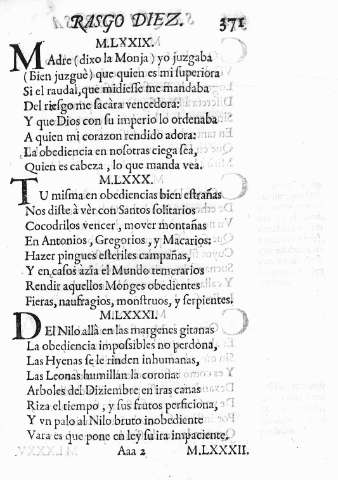 RASGO DIEZ. 371
M.LXXIX.
MAdre (dixo la Monja) yo juzgaba
(Bien juzguè) que quien es mi superiora
Si el raudal, que midiesse me mandaba
Del riesgo me sacàra vencedora:
Y que Dios con su imperio lo ordenaba
A quien mi corazon rendido adora:
La obediencia en nosotras ciega sea,
Quien es cabeza, lo que manda vea.
M.LXXX.
TU misma en obediencias bien estrañas
Nos diste à vèr con Santos solitarios
Cocodrilos vencer, mover montañas
En Antonios, Gregorios, y Macarios:
Hazer pingues esteriles campañas,
Y en casos azia el Mundo temerarios
Rendir aquellos Monges obedientes
Fieras, naufragios, monstruos, y serpientes.
M.LXXXI.
DEl Nilo allà en las margenes gitanas
La obediencia impossibles no perdona,
Las Hyenas se le rinden inhumanas,
Las Leonas humillan la corona:
Arboles del Diziembre en iras canas
Riza el tiempo, y sus frutos perficiona,
Y vn palo al Nilo bruto inobediente
Vara es que pone en ley su ira impaciente.
Aaa 2 M.LXXXII.